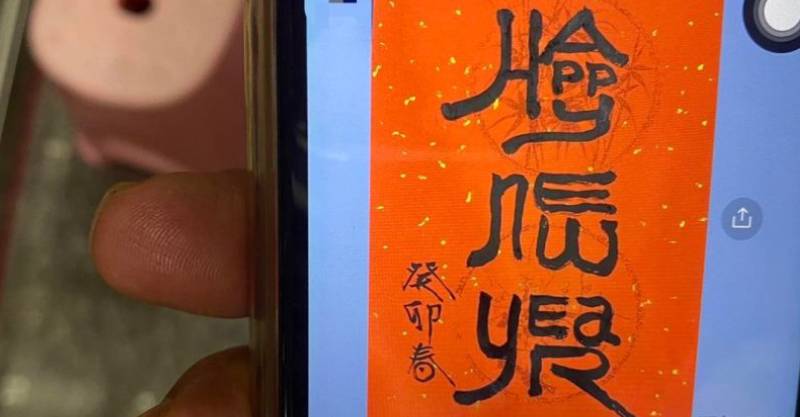 HAPPY
NEW
YEAR
癸卯春